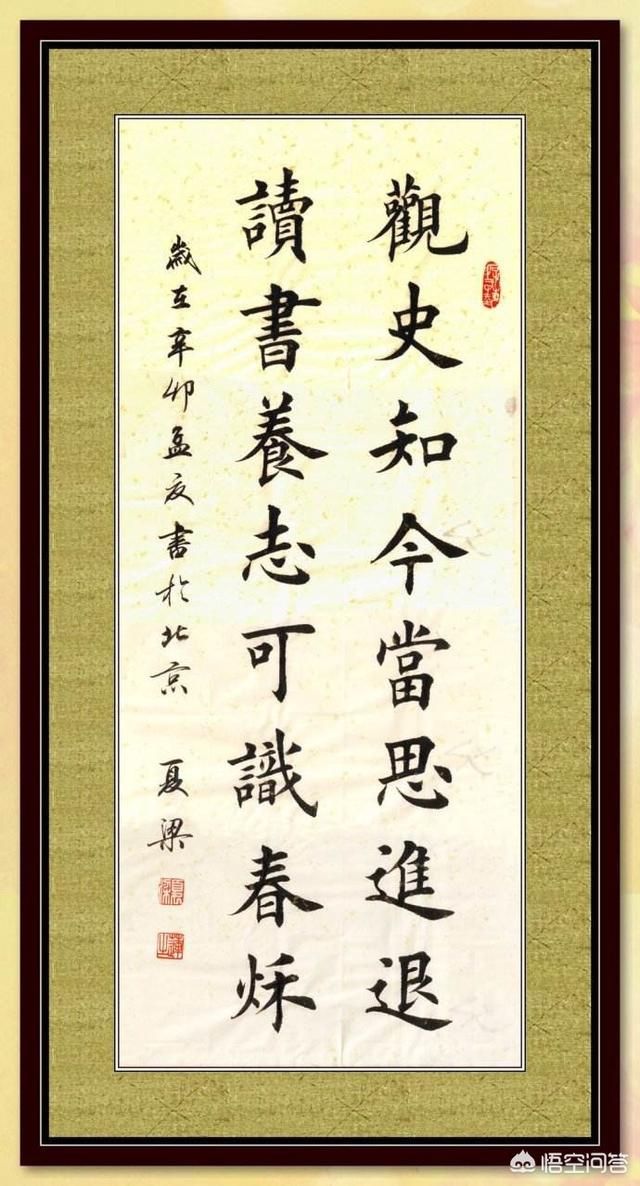 觀史知今當思進退
讀書養志可識春秌
歲在辛卯孟夏書於北京 夏梁
悟空问答